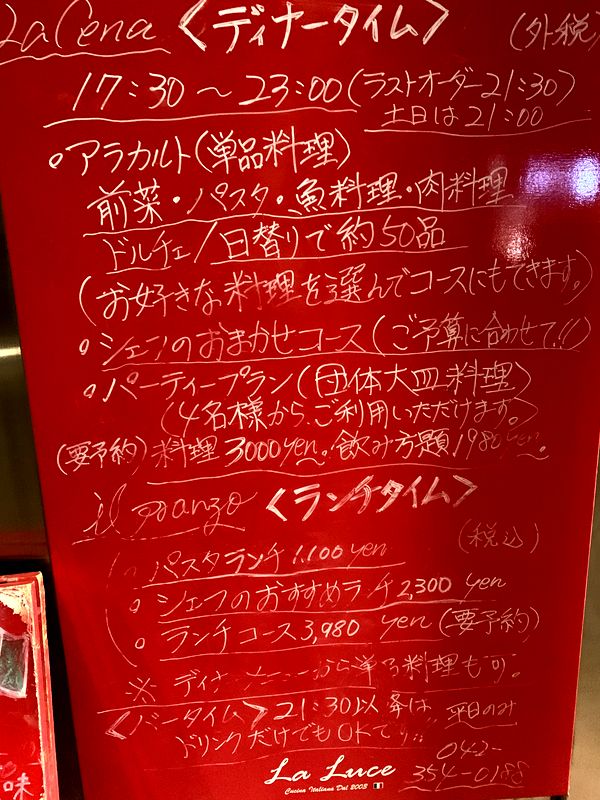 La Cena 〈ディナータイム〉 (外税)
17:30～23:00(ラストオーダー21:30)
土日は21:00
○アラカルト(単品料理)
前菜・パスタ・魚料理・肉料理
ドルチェ/日替りで約50品
(お好きな料理を選んでコースにもできます。)
○シェフのおまかせコース(ご予算に合わせて!!)
○パーティープラン(団体大皿料理)
(4名様からご利用いただけます。)
(要予約)料理3000yen。飲み方題1980yen。
il pranzo 〈ランチタイム〉
(税込)
パスタランチ1,100yen
○シェフのおすすめランチ2,300yen
○ランチコース3,980yen(要予約)
※ディナーメニューから単品料理も可。
〈バータイム〉21:30以降は 平日のみ
ドリンクだけでもOKです!!
042-
354-0188
La Luce
Cucina Italiana Dal 2003
味